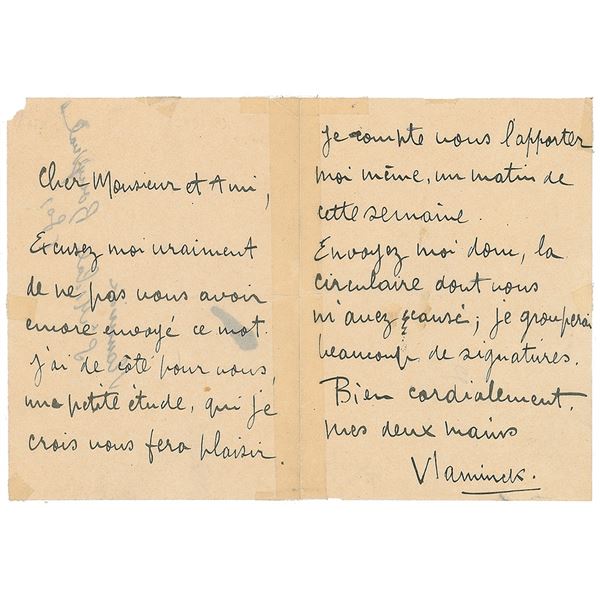 Cher Monsieur et Ami,
Excusez moi vraiment
de ne pas vous avoir
encore envoyé ce mot.
J'ai de coté pour vous,
une petite étude, qui je
crois vous fera plaisir
Je compte vous l'apporter
moi même, un matin de
cette semaine.
Envoyez moi donc, la
circulaire dont vous
m'avez causé; je grouperai
beaucoup de signatures.
Bien cordialement,
mes deux mains
Vlaminck.